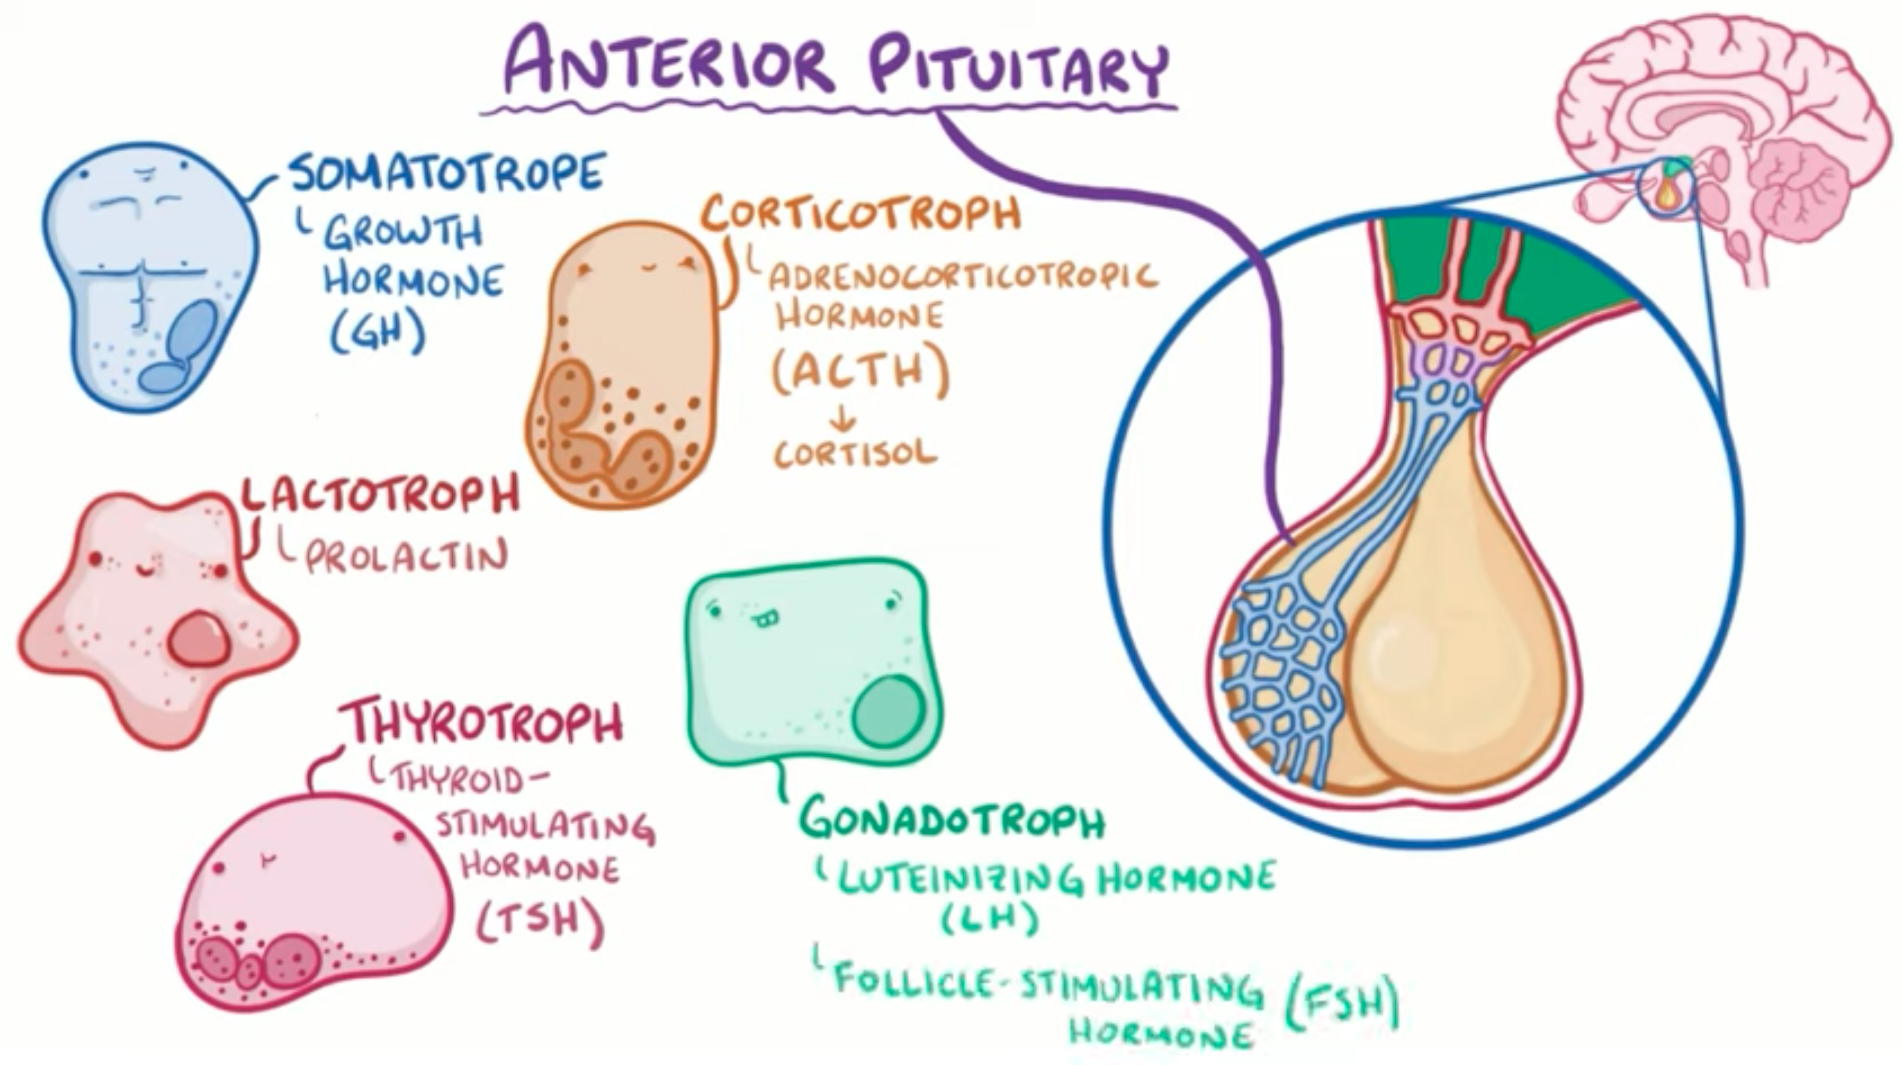 ANTERIOR PITUITARY
SOMATOTROPE
GROWTH
HORMONE
(GH)
CORTICOTROPH
ADRENOCORTICOTROPIC
HORMONE
(ACTH)
↓
CORTISOL
LACTOTROPH
PROLACTIN
THYROTROPH
THYROID-
STIMULATING
HORMONE
(TSH)
GONADOTROPH
LUTEINIZING HORMONE
(LH)
FOLLICLE-STIMULATING (FSH)
HORMONE